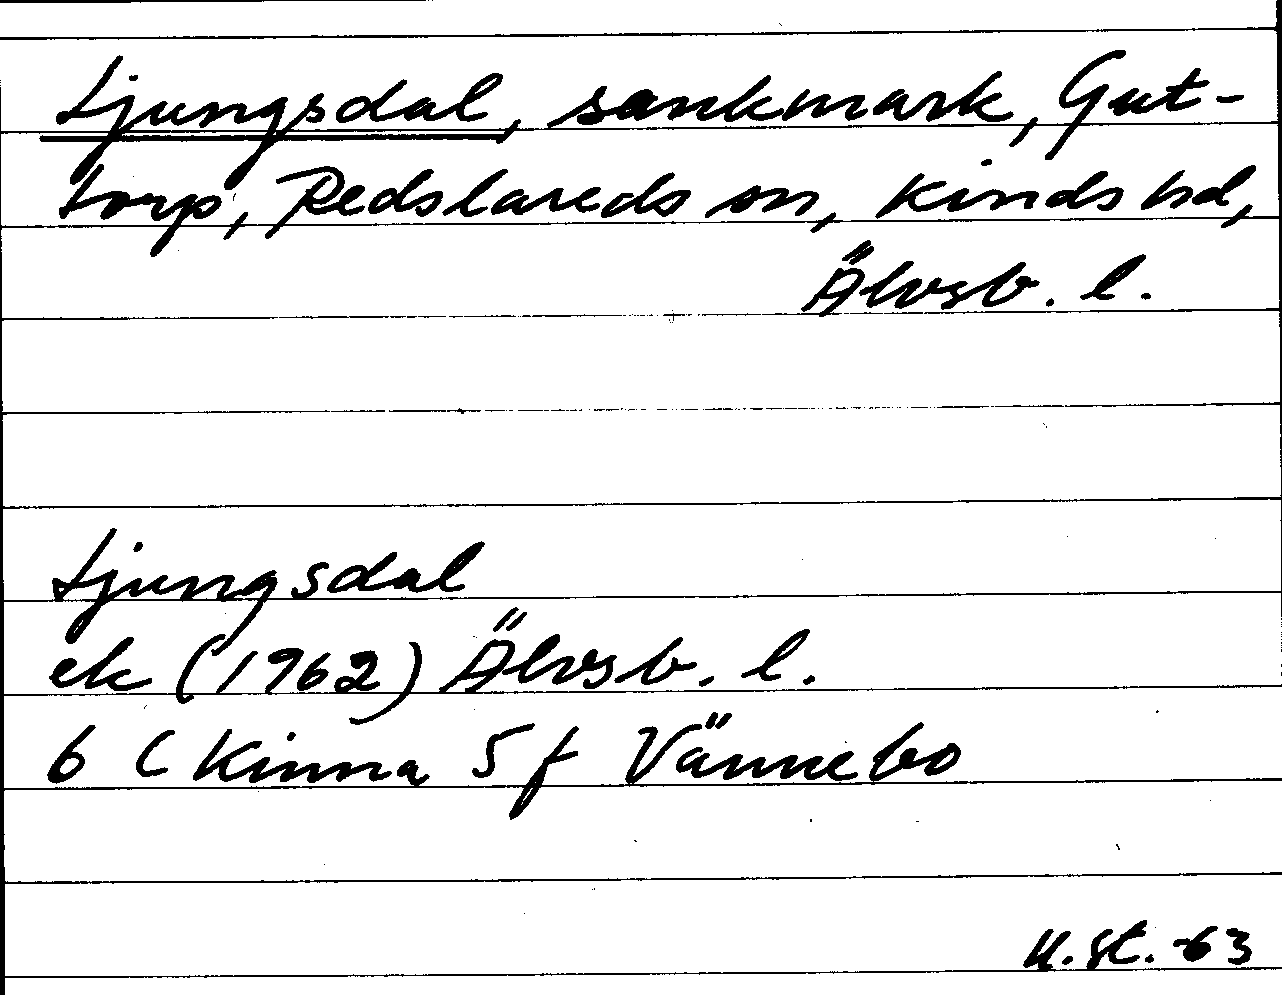 Ljungsdal, sankmark, Gut-
torp, Redslareds sn, Kinds hd,
Älvsb. l.
Ljungsdal
ek (1962) Älvsb. l.
6 C Kinna 5 f Vännebo
U. St. -63